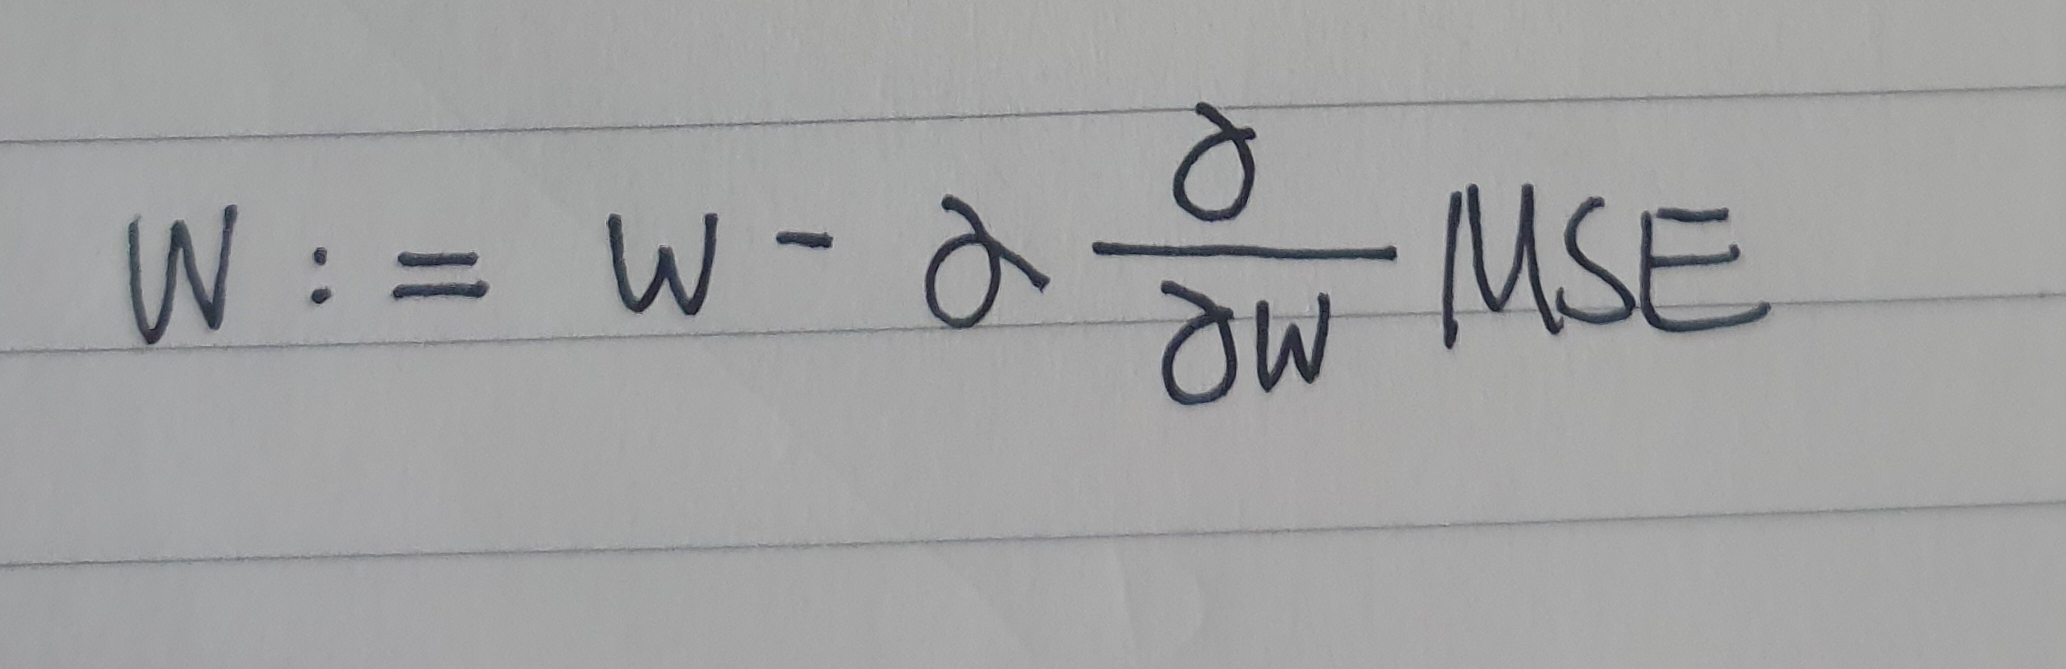 W := W - α ∂/∂W MSE